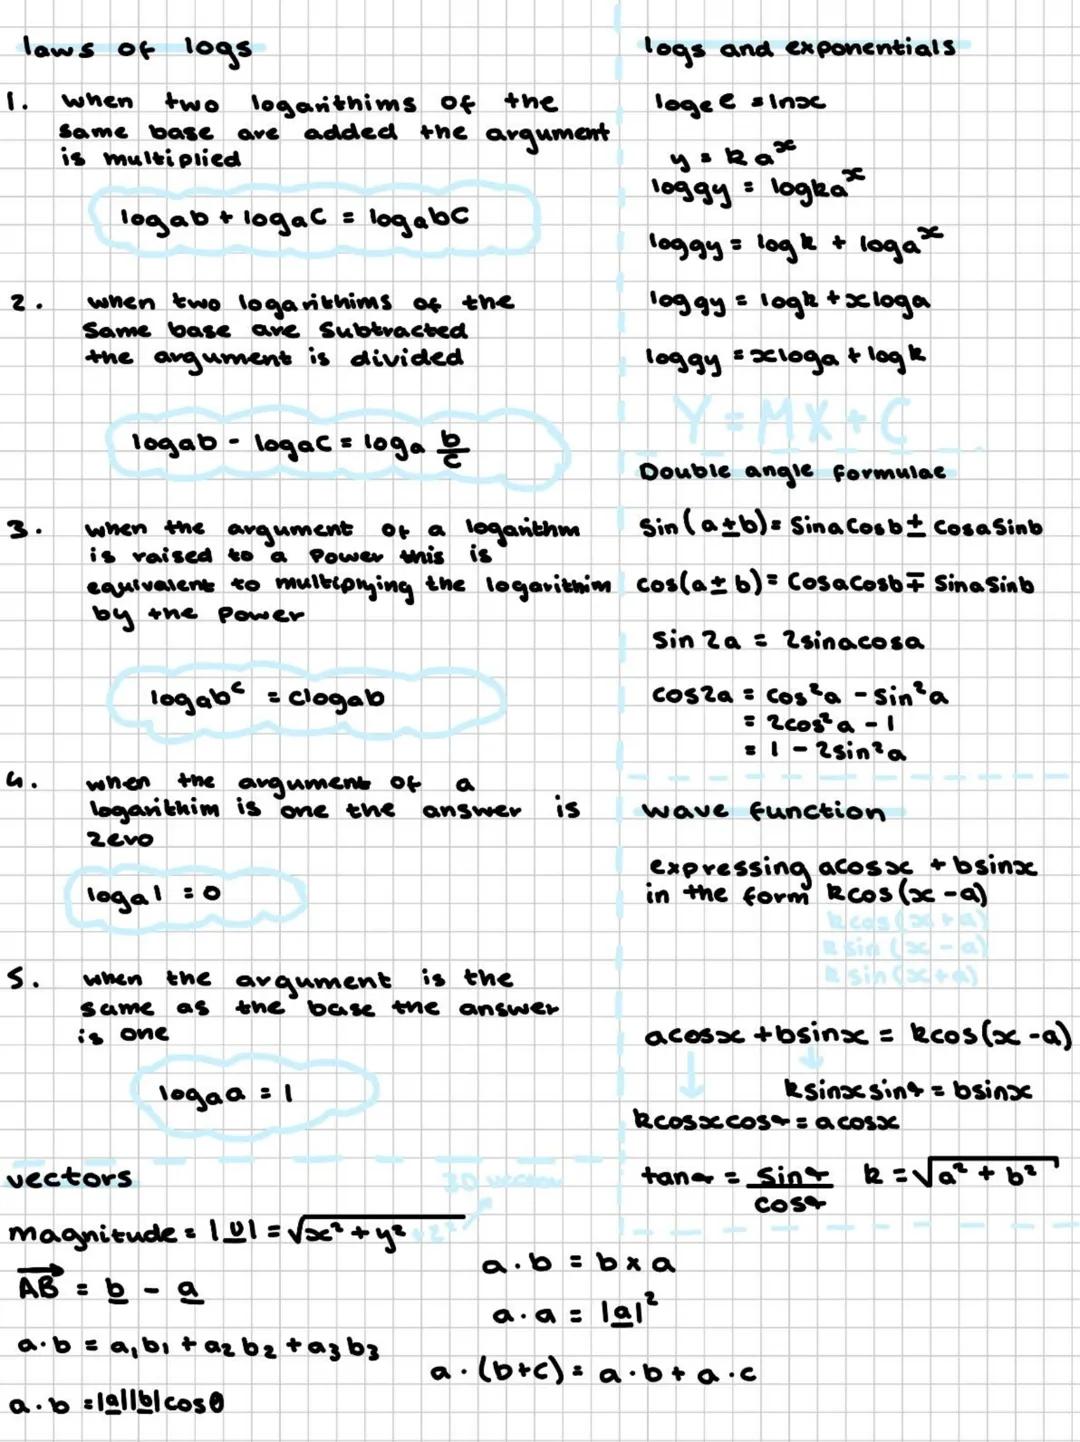 laws of logs
1. when two logarithims of the
same base are added the argument
is multiplied
logab + logaC = logabC
2. when two logarithims of the
Same base are Subtracted
the argument is divided
logab - logaC = loga b/c
3. when the argument of a logarithm
is raised to a Power this is
equivalent to multiplying the logarithim
by the Power
logabᶜ = clogab
4. when the argument of a
logarithim is one the answer is
zero
loga1 = 0
5. when the argument is the
same as the base the answer
is one
logaa = 1
vectors
3D vector
magnitude = |u| = √x² + y² + z²
AB = b - a
a·b = a₁b₁ + a₂b₂ + a₃b₃
a·b = |a||b|cosθ
a·b = b x a
a·a = |a|²
a·(b+c) = a·b + a·c
logs and exponentials
logee = lnx
y = kaˣ
loggy = logkaˣ
loggy = logk + logaˣ
loggy = logk + xloga
loggy = xloga + logk
Y = MX + C
Double angle formulae
Sin(a±b) = SinaCosb ± CosaSinb
cos(a±b) = Cosacosb ∓ SinaSinb
Sin2a = 2sinacosa
cos2a = cos²a - Sin²a
= 2cos²a - 1
= 1 - 2sin²a
wave function
expressing acosx + bsinx
in the form kcos(x-a)
kcos(x+a)
ksin(x-a)
ksin(x+a)
acosx + bsinx = kcos(x-a)
ksinxsinα = bsinx
kcosxcosα = acosx
tanα = Sinα/cosα k = √a² + b²